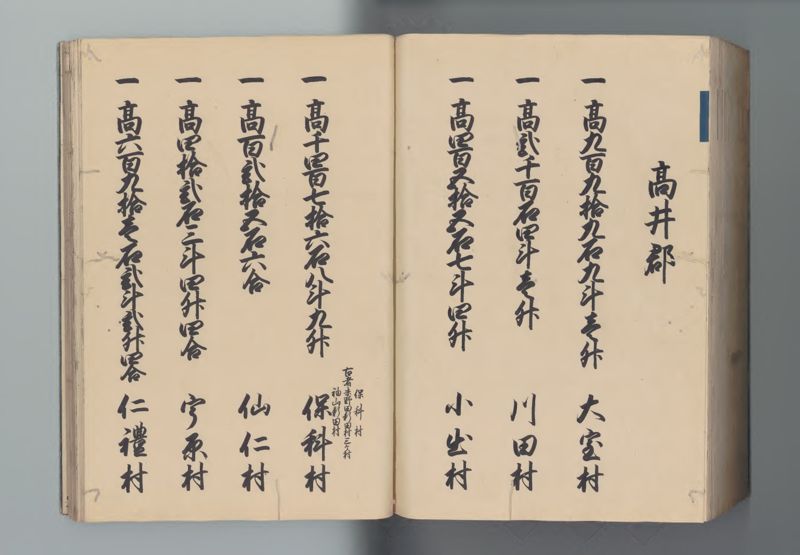 高井郡
一 高九百九拾九石九斗壱升 大室村
一 高弐千百石四斗壱升 川田村
一 高四百五拾五石七斗四升 小出村
保科村
古者 赤野田新田村 三ケ村
袖山新田村
一 高千四百七拾六石八斗九升 保科村
一 高百弐拾五石六合 仙仁村
一 高四拾弐石三斗四升四合 宇原村
一 高六百九拾壱石弐斗弐升四合 仁禮村